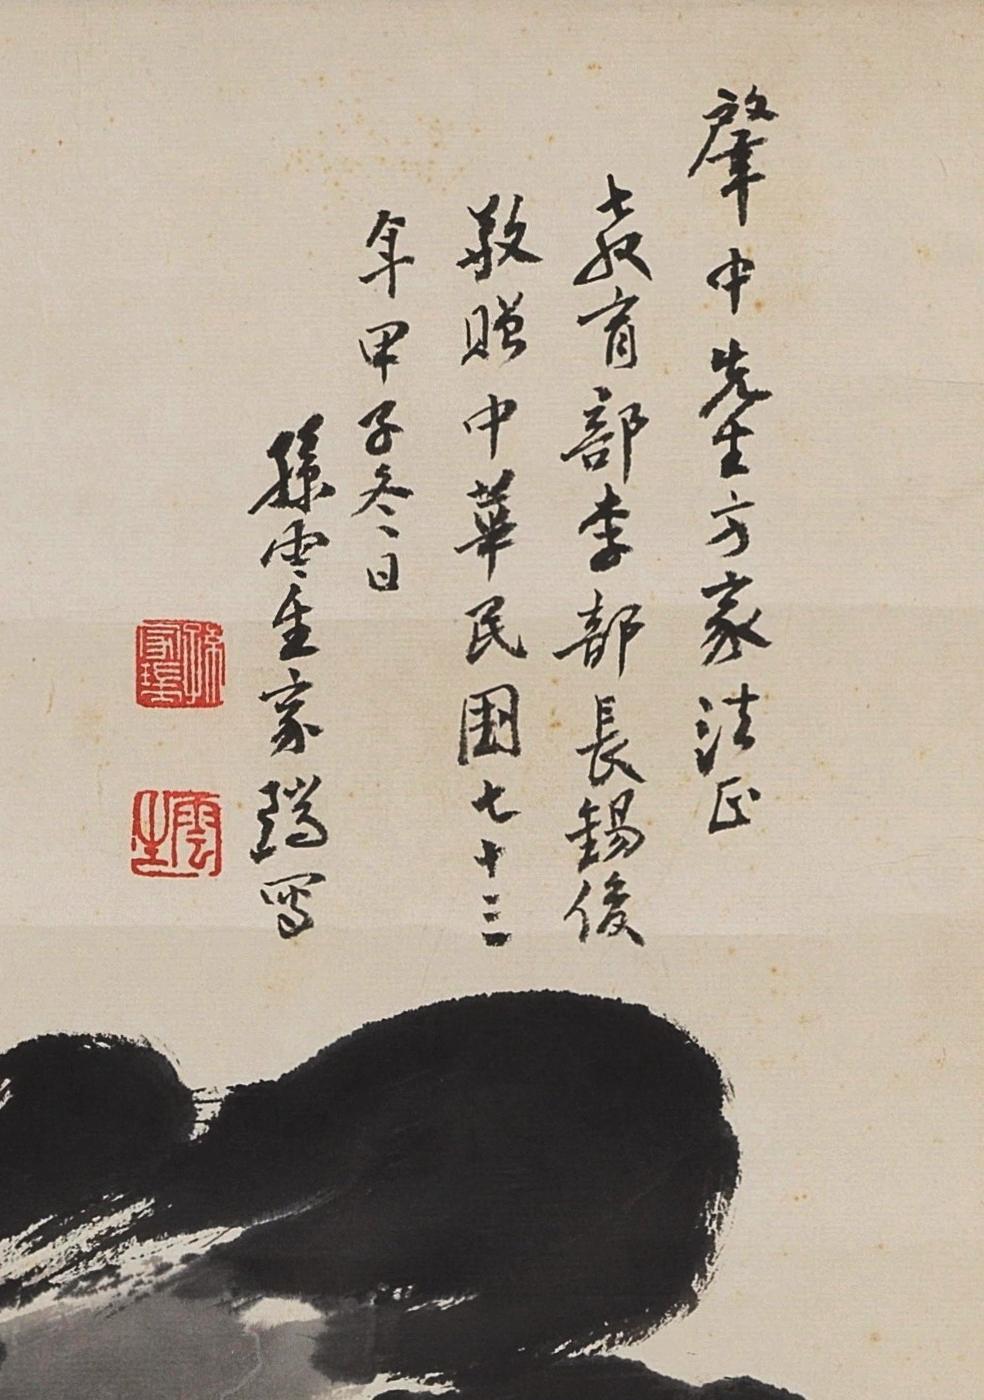 肇中先生方家法正
教育部李部長錫俊
敬贈中華民國七十三
年甲子冬日
孫雲生家瑞寫
孫家瑞
雲生